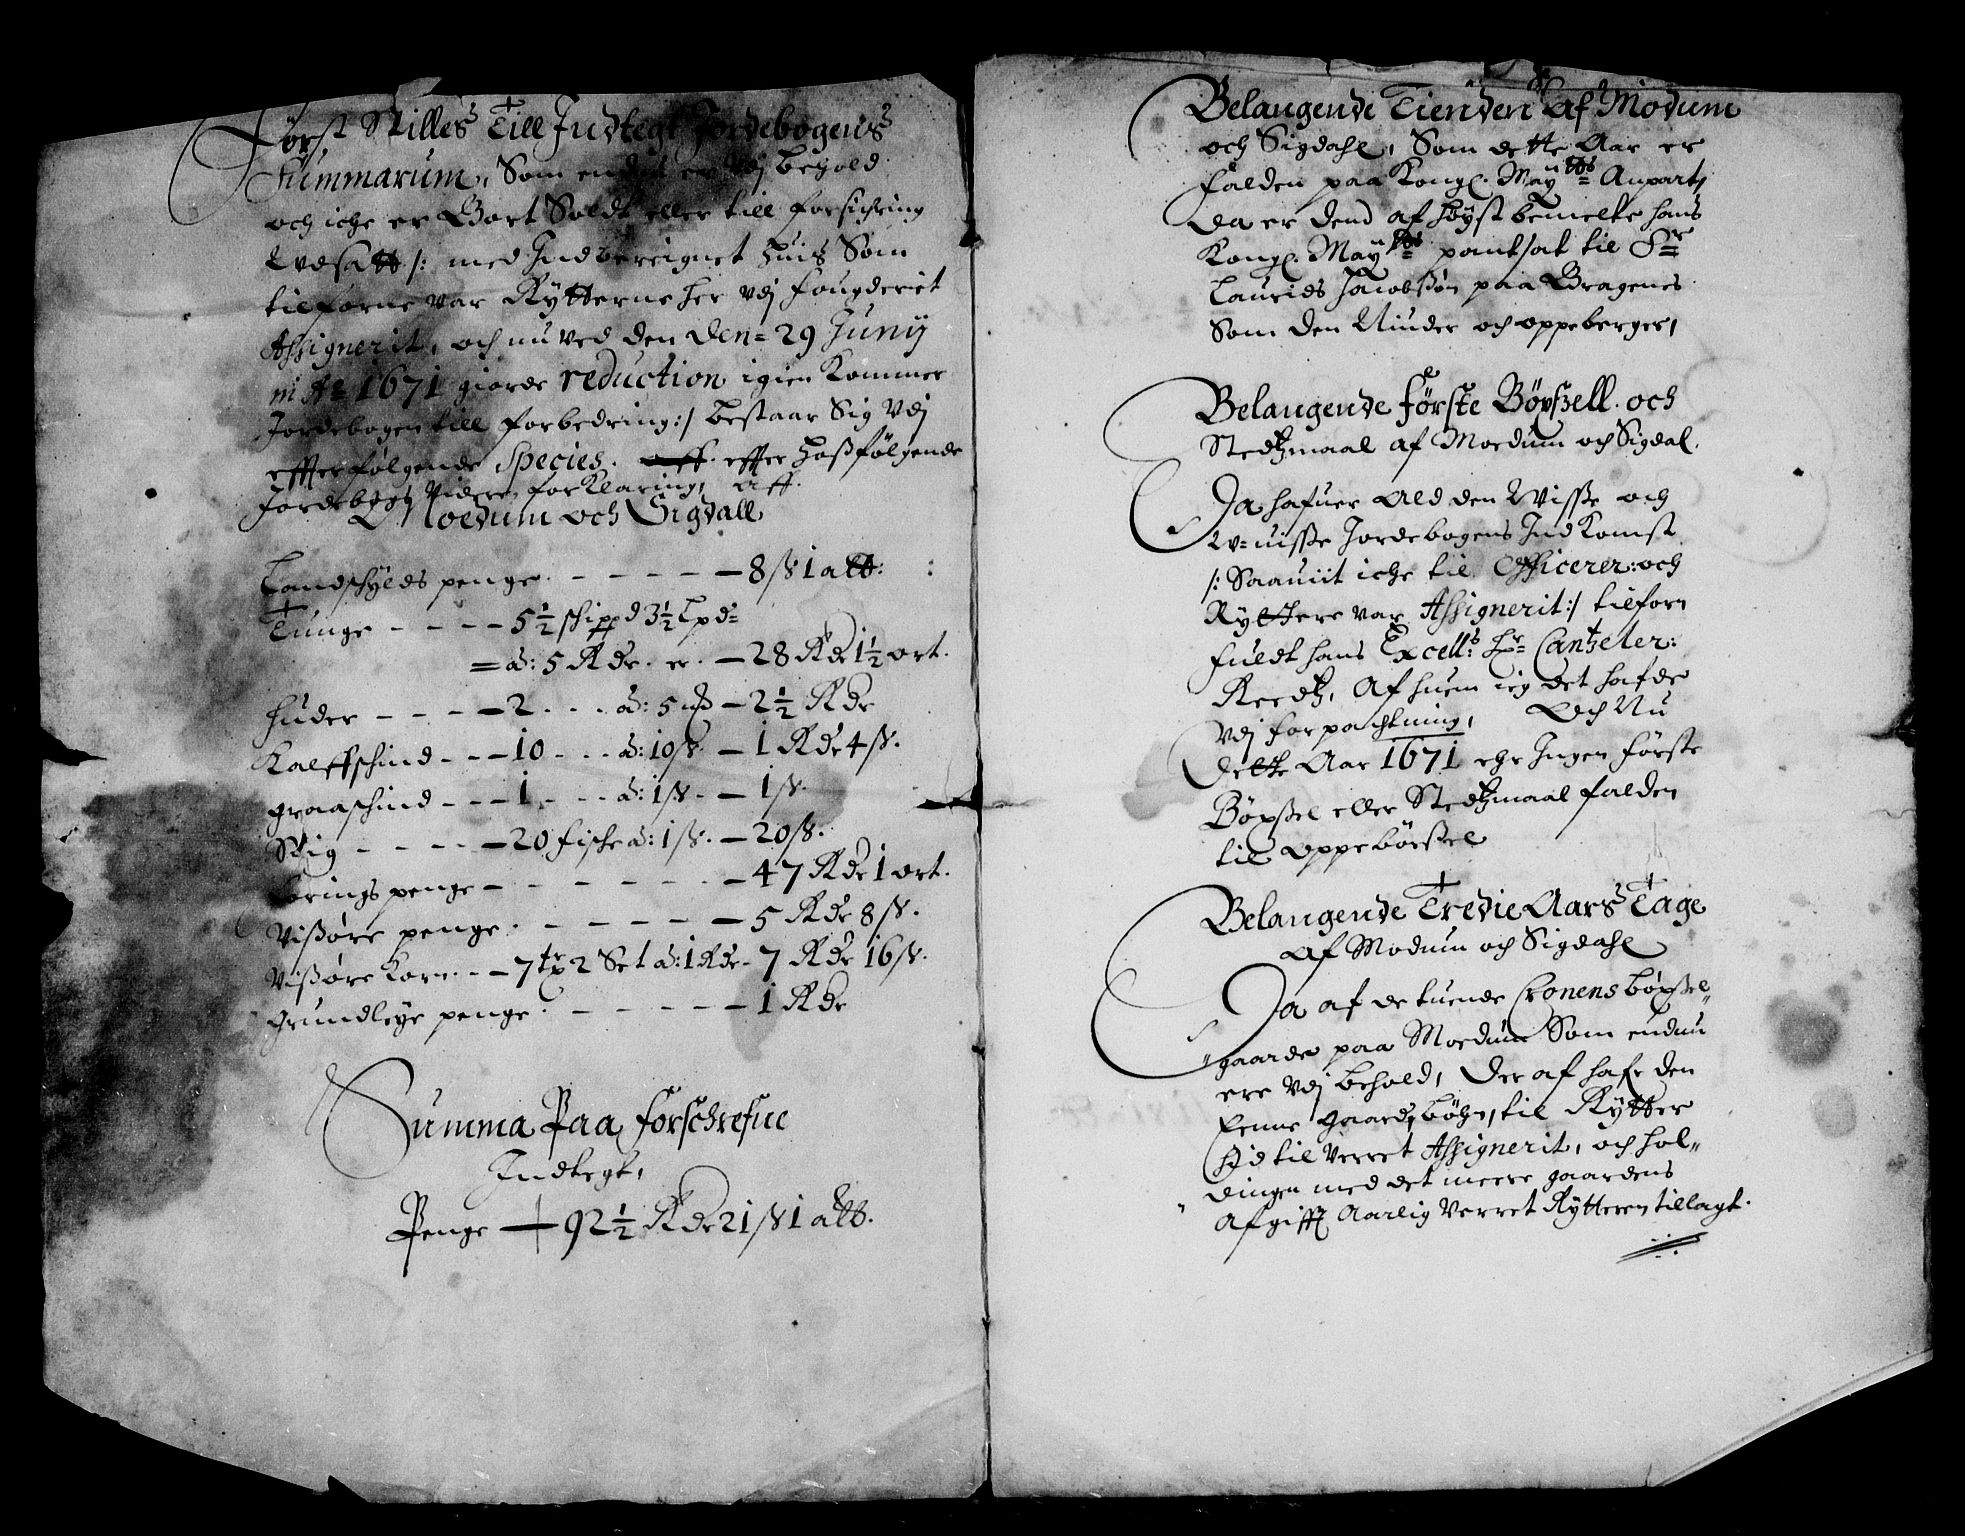 Først Stilles Till Indtegt Jordebogens
Summarum, Som endnu er Vdj behold
och iche er Bort Soldt eller till forsichring
Wdsatt /: med Indbereignet huis Som
tilforne var Rytterne her vdj fougderiet
Assignerit, och nu ved den Den= 29 Junij
A= 1671 giorde reduction igien kommer
Jordebogen till forbedring :/ bestaar Sig Vdj
effterfølgende Species. effter hosfølgende
Jordebogs Videre forklaring, Aff.
Moedum och Sigdall
Landschylds penge. - - - - - 8 ß 1 alb:
Tunge - - - - 5½ schippd 3½ Lpd=
= à: 5 Rdr. er. - 28 Rdr 1½ ort.
huder - - - - 2 . . . à: 5 - 2½ Rdr
Kalffschind - - - 10 - . . à: 10 ß. - 1 Rdr 4 ß.
graaschind - - - 1 - . . à: 1 ß - - 1 ß.
- - - - 20 fische à: 1 ß. - 20 ß.
penge - - - - - - - 47 Rdr 1 ort.
Vissøre penge. - - - - - 5 Rdr 8 ß.
Vissøre korn - - - 7 tr 2 Set à: 1 Rdr - 7 Rdr 16 ß.
Grundleye penge. - - - - - 1 Rdr
Summa Paa forschrefne
Indtegt,
Penge — 92½ Rdr 21 ß 1 alb.
Belangende Tienden Af Modum
och Sigdahl, Som dette Aar er
falden paa Kongl. Mayts= Anpart,
Da er dend af høyst bemelte hans
Kongl. Mayts= pantsat til Sr=
Laurids Jacobssøn paa Bragenes
Som den Niuder och oppeberger,
Belangende første Böxsell. och
Stedtzmaal af Moedum och Sigdal.
Da hafuer Ald den Wisse och
W=uisse Jordebogens Ind Komst
/: Saauiit iche til Officerer: och
Ryttere var Assignerit :/ tilforn
fuldt hans Excell:s Hr= Cantzeler:
Reedtz, Af huem ieg det hafde
vdj forpachtning, Och Nu
dette Aar 1671 ehr Ingen første
Böxsel eller Stedtzmaal falden
til oppebørssel
Belangende Tredie Aars Tage
Af Modum och Sigdahl
Da af de tuende Cronens böxsel„
„gaarde paa Moedum Som endnu
ere vdj behold, Der af hafr den
Eenne gaards bøhr, til Rytter
hid til verret Assignerit, och hol„
dingen med det meere gaardens
Afgifft Aarlig verret Rytteren tillagt.